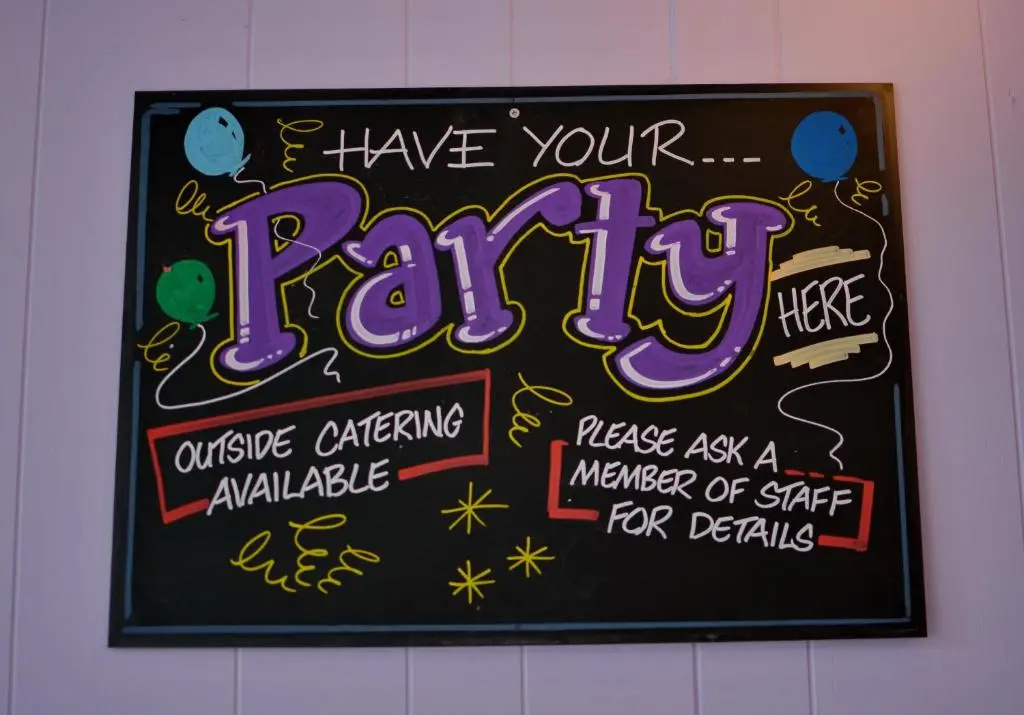 HAVE YOUR...
Party
HERE
OUTSIDE CATERING
AVAILABLE
PLEASE ASK A
MEMBER OF STAFF
FOR DETAILS